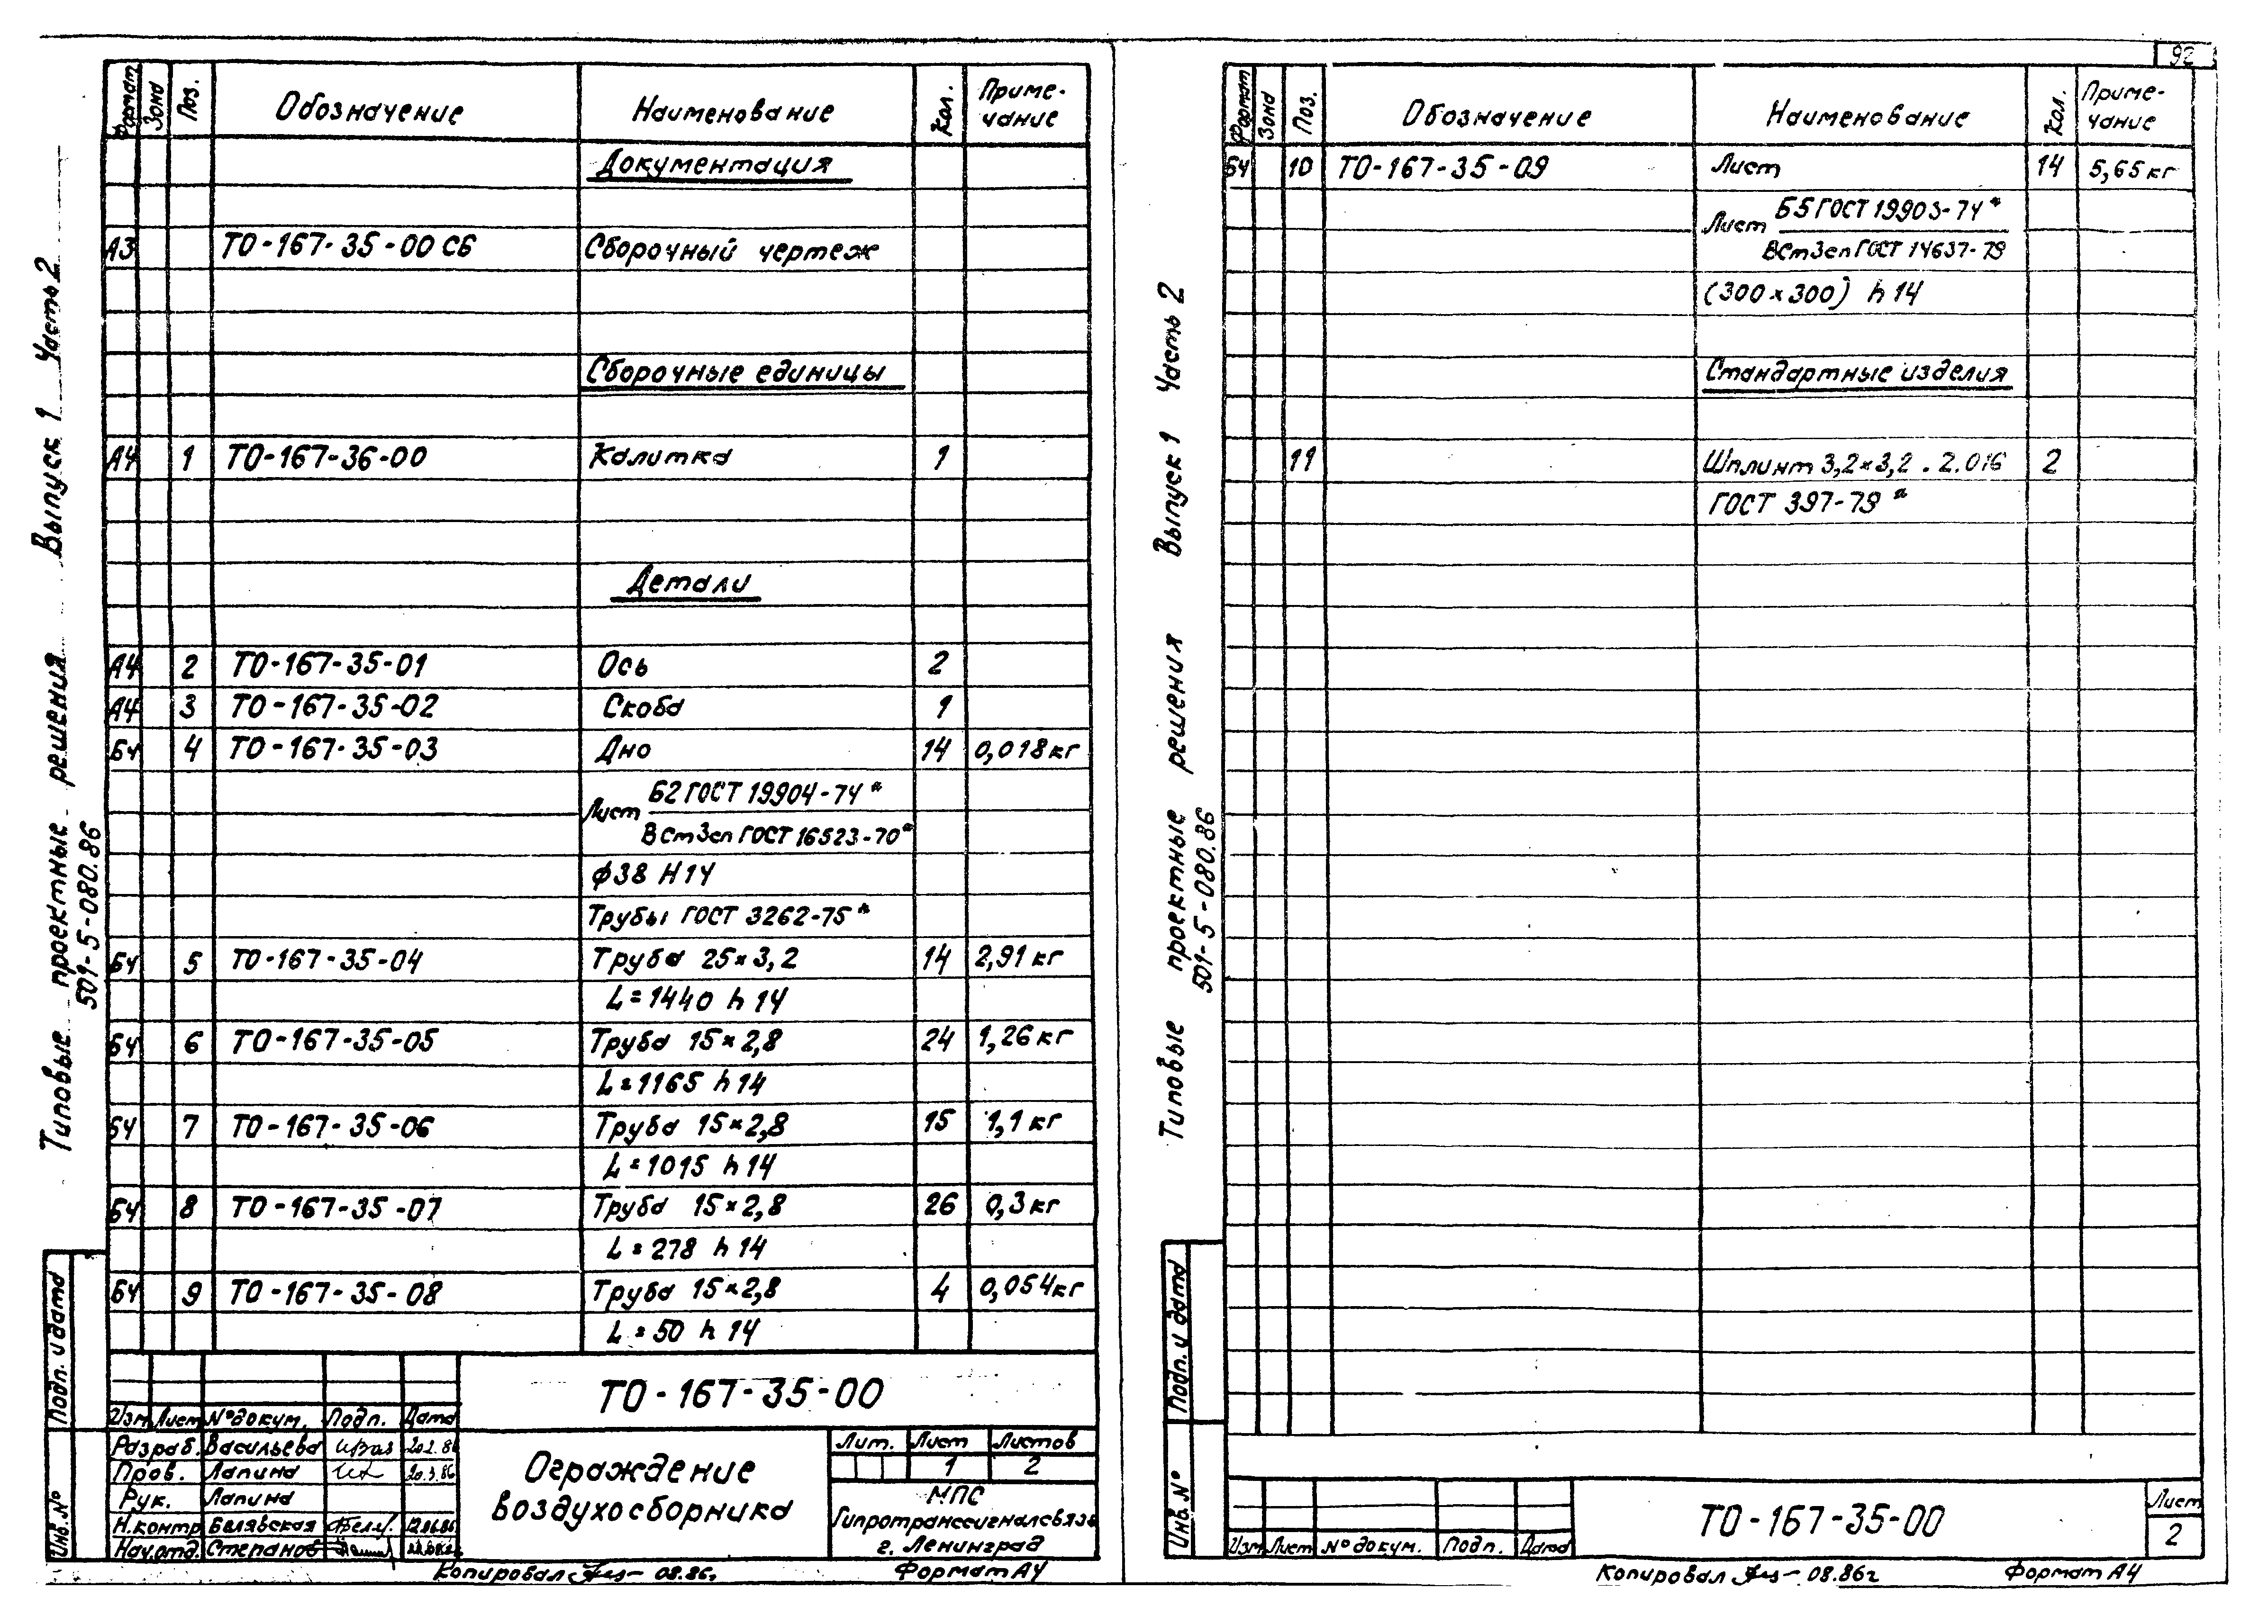 92
Типовые проектные решения Выпуск 1 Часть 2
501-5-080.86
Формат Зона Поз. Обозначение Наименование Кол. Приме-
чание
Документация
А3 ТО-167-35-00 СБ Сборочный чертеж
Сборочные единицы
А4 1 ТО-167-36-00 Калитка 1
Детали
А4 2 ТО-167-35-01 Ось 2
А4 3 ТО-167-35-02 Скоба 1
БЧ 4 ТО-167-35-03 Дно 14 0,018 кг
Б2 ГОСТ 19904-74*
Лист
ВСт3сп ГОСТ 16523-70*
ф38 Н14
Трубы ГОСТ 3262-75*
БЧ 5 ТО-167-35-04 Труба 25×3,2 14 2,91 кг
L=1440 h14
БЧ 6 ТО-167-35-05 Труба 15×2,8 24 1,26 кг
L=1165 h14
БЧ 7 ТО-167-35-06 Труба 15×2,8 15 1,1 кг
L=1015 h14
БЧ 8 ТО-167-35-07 Труба 15×2,8 26 0,3 кг
L=278 h14
БЧ 9 ТО-167-35-08 Труба 15×2,8 4 0,054 кг
L=50 h14
Подп. и дата
Инв. №
ТО-167-35-00
Изм Лист № докум. Подп. Дата
Разраб. Васильева 20.2.86
Пров. Лапина 20.3.86
Рук. Лапина
Н.контр Белявская 12.06.86
Нач.отд. Степанов
Ограждение
воздухосборника
Лит. Лист Листов
1 2
МПС
Гипротранссигналсвязь
г. Ленинград
Копировал 08.86г Формат А4
Типовые проектные решения Выпуск 1 Часть 2
501-5-080.86
Формат Зона Поз. Обозначение Наименование Кол. Приме-
чание
БЧ 10 ТО-167-35-09 Лист 14 5,65 кг
Б5 ГОСТ 19903-74*
Лист
ВСт3сп ГОСТ 14637-79
(300×300) h14
Стандартные изделия
11 Шплинт 3,2×3,2.2.016 2
ГОСТ 397-79*
Подп. и дата
Инв. №
Изм Лист № докум. Подп. Дата
ТО-167-35-00
Лист
2
Копировал 08.86г Формат А4